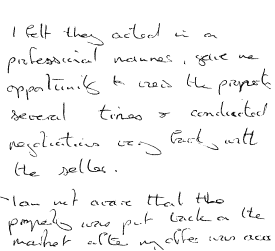 I felt they acted in a
professional manner, gave me
opportunity to view the property
several times & conducted
negotiations very fairly with
the seller.
I am not aware that the
property was put back on the
market after my offer was